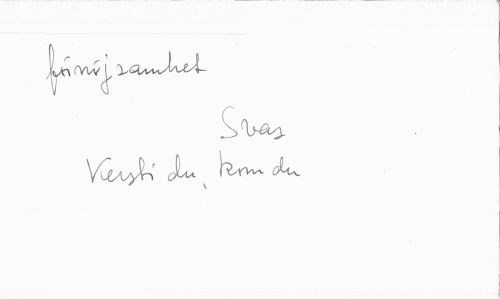 förnöjsamhet
Svar
Kersti du, kom du